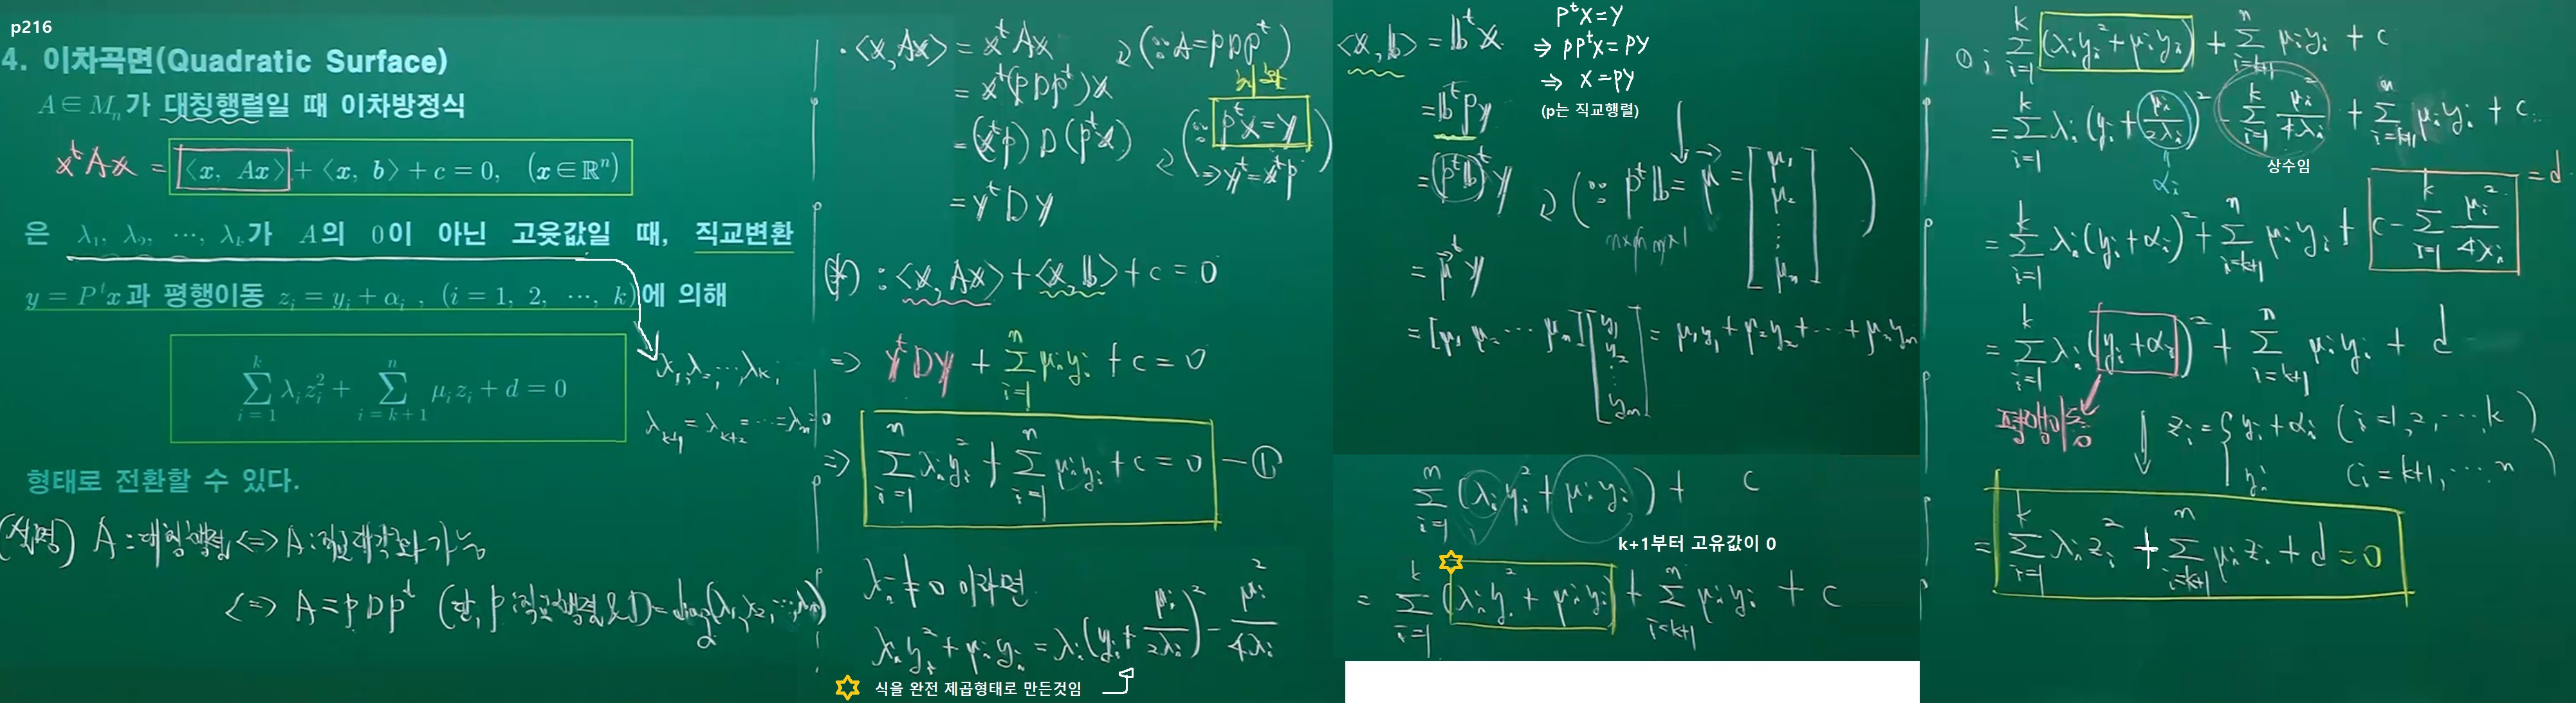 p216
4. 이차곡면(Quadratic Surface)
A ∈ Mₙ가 대칭행렬일 때 이차방정식
xᵗAx = ⟨x, Ax⟩ + ⟨x, b⟩ + c = 0, (x ∈ ℝⁿ)
은 λ₁, λ₂, ⋯, λₖ가 A의 0이 아닌 고윳값일 때, 직교변환
y = Pᵗx과 평행이동 zᵢ = yᵢ + αᵢ , (i = 1, 2, ⋯, k)에 의해
∑_{i=1}^{k} λᵢzᵢ² + ∑_{i=k+1}^{n} μᵢzᵢ + d = 0
λ₁, λ₂, ⋯, λₖ,
λₖ₊₁ = λₖ₊₂ = ⋯ = λₙ = 0
형태로 전환할 수 있다.
(설명) A : 대칭행렬 ⟺ A : 직교대각화 가능
⟺ A = PDPᵗ (단, P : 직교행렬 & D = diag(λ₁, λ₂, ⋯, λₙ))
· ⟨x, Ax⟩ = xᵗAx
(∵ A = PDPᵗ)
= xᵗ(PDPᵗ)x
= (xᵗP) D (Pᵗx)
(∵ Pᵗx = y
⇒ yᵗ = xᵗP)
= yᵗDy
(*) : ⟨x, Ax⟩ + ⟨x, b⟩ + c = 0
⇒ yᵗDy + ∑_{i=1}^{n} μᵢyᵢ + c = 0
⇒ ∑_{i=1}^{n} λᵢyᵢ² + ∑_{i=1}^{n} μᵢyᵢ + c = 0 — ①
λᵢ ≠ 0 이라면
λᵢyᵢ² + μᵢyᵢ = λᵢ(yᵢ + μᵢ/2λᵢ)² − μᵢ²/4λᵢ
식을 완전 제곱형태로 만든것임
⟨x, b⟩ = bᵗx
PᵗX=Y
⇒ PPᵗX=PY
⇒ X=PY
(p는 직교행렬)
= bᵗPy
= (Pᵗb)ᵗy
(∵ Pᵗb = μ⃗ = [μ₁ μ₂ ⋮ μₙ])
n×n n×1
= μ⃗ᵗy
= [μ₁ μ₂ ⋯ μₙ][y₁ y₂ ⋮ yₙ] = μ₁y₁ + μ₂y₂ + ⋯ + μₙyₙ
∑_{i=1}^{n} (λᵢyᵢ² + μᵢyᵢ) + c
k+1부터 고유값이 0
= ∑_{i=1}^{k} (λᵢyᵢ² + μᵢyᵢ) + ∑_{i=k+1}^{n} μᵢyᵢ + c
①; ∑_{i=1}^{k} (λᵢyᵢ² + μᵢyᵢ) + ∑_{i=k+1}^{n} μᵢyᵢ + c
= ∑_{i=1}^{k} λᵢ(yᵢ + μᵢ/2λᵢ)² − ∑_{i=1}^{k} μᵢ²/4λᵢ + ∑_{i=k+1}^{n} μᵢyᵢ + c
αᵢ
상수임
= ∑_{i=1}^{k} λᵢ(yᵢ + αᵢ)² + ∑_{i=k+1}^{n} μᵢyᵢ + c − ∑_{i=1}^{k} μᵢ²/4λᵢ = d
= ∑_{i=1}^{k} λᵢ(yᵢ + αᵢ)² + ∑_{i=k+1}^{n} μᵢyᵢ + d
평행이동
zᵢ = { yᵢ + αᵢ (i = 1, 2, ⋯, k)
yᵢ (i = k+1, ⋯ n)
= ∑_{i=1}^{k} λᵢzᵢ² + ∑_{i=k+1}^{n} μᵢzᵢ + d = 0